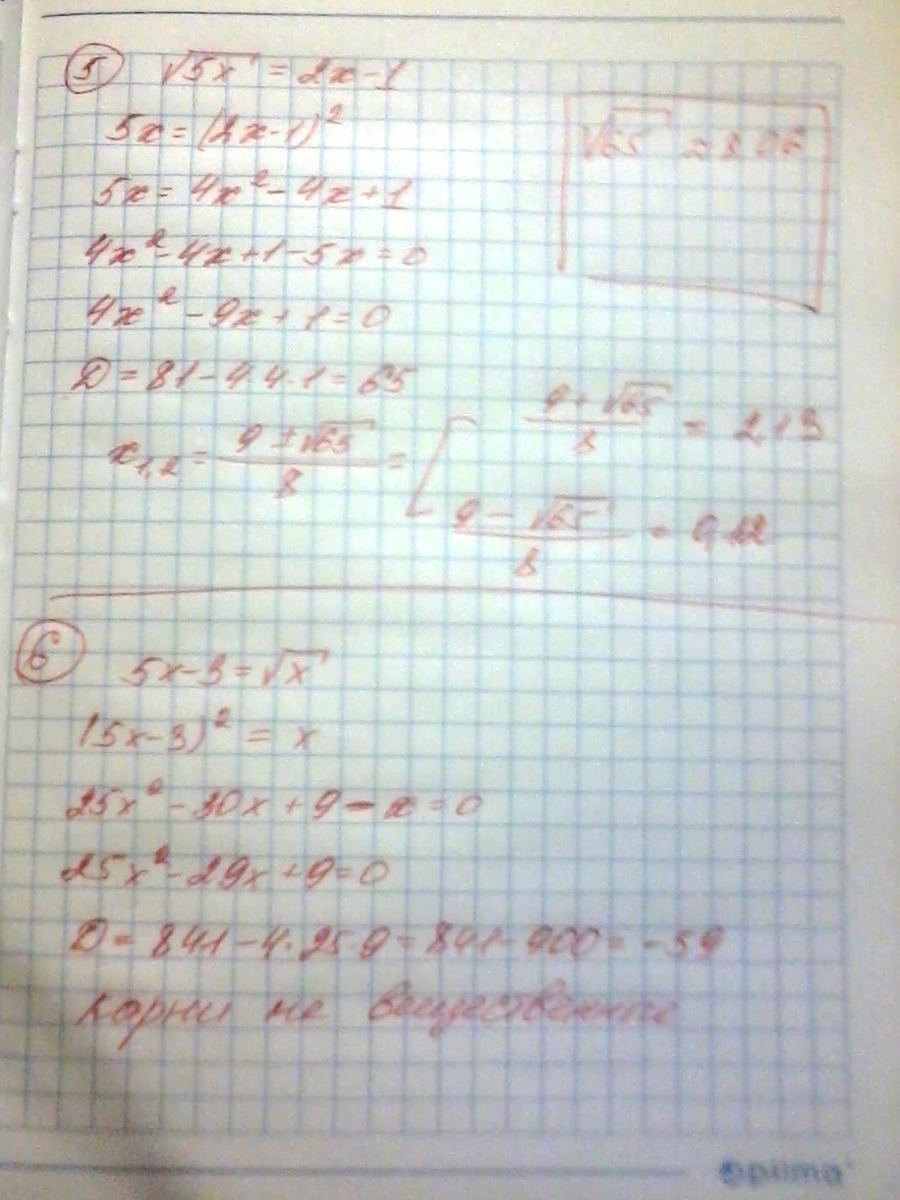 5 √5x = 2x-1
5x = (2x-1)²
5x = 4x² - 4x + 1
4x² - 4x + 1 - 5x = 0
4x² - 9x + 1 = 0
D = 81 - 4·4·1 = 65
x1,2 = (9 ± √65)/8 = [ (9 + √65)/8 = 2,13
(9 - √65)/8 = 0,12
√65 ≈ 8.06
6 5x - 3 = √x
(5x-3)² = x
25x² - 30x + 9 - x = 0
25x² - 29x + 9 = 0
D = 841 - 4·25·9 = 841 - 900 = -59
Корни не вещественные
Optima